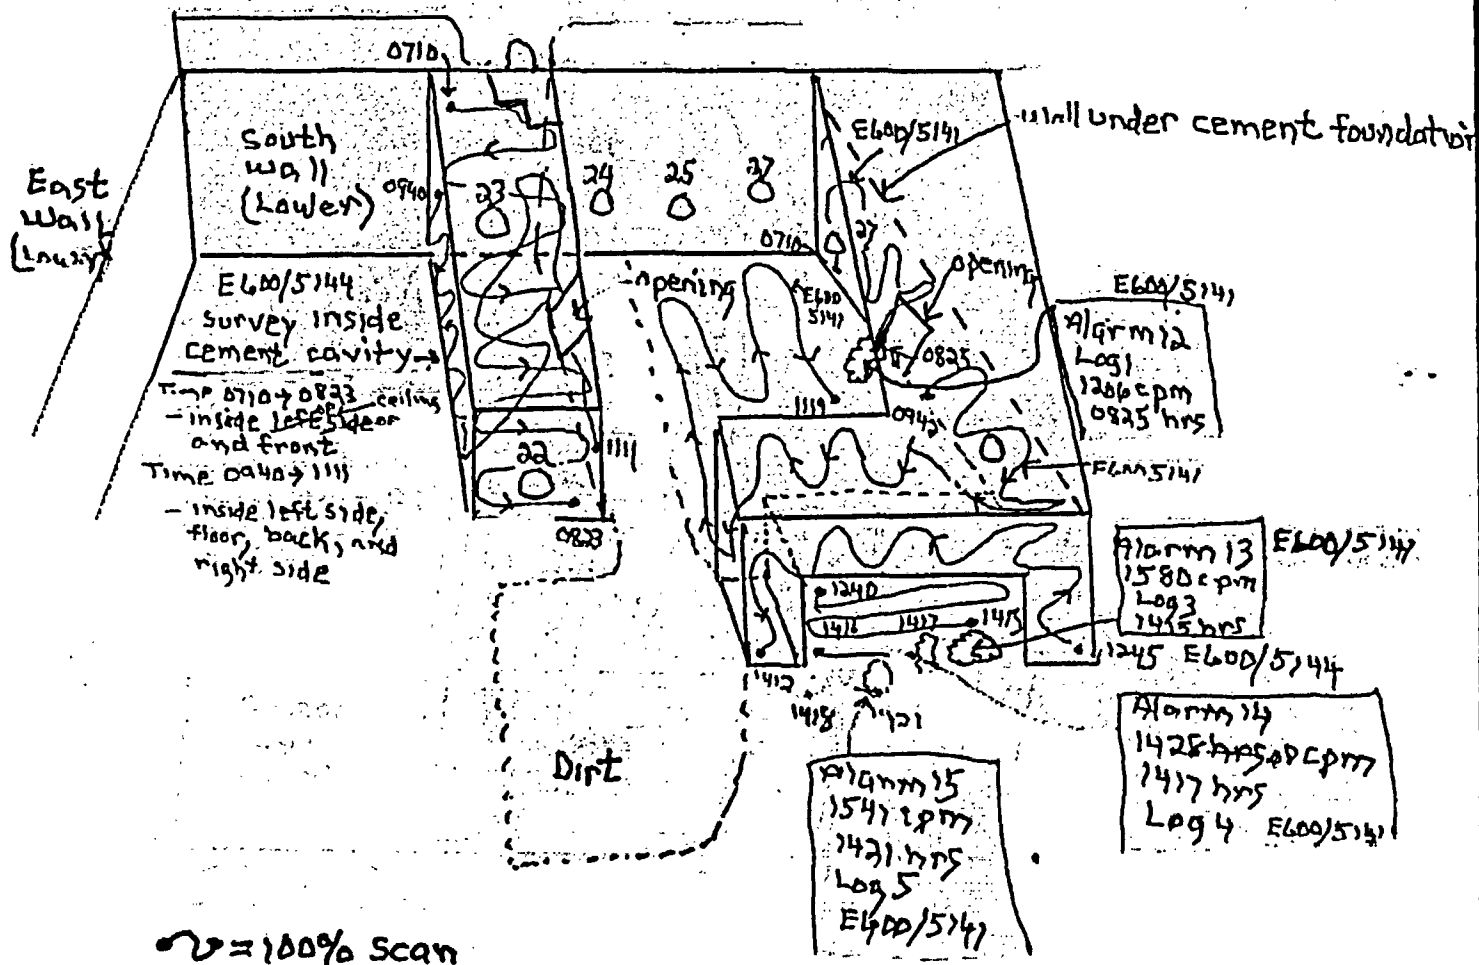 0710
South
wall
(Lower)
East
Wall
0940
23
24
25
27
0710
E600/5141
wall under cement foundation
27
opening
opening
E600
5141
0825
1119
0942
E600/5141
Alarm 12
Log 1
1206 cpm
0825 hrs
E600/5144
survey inside
cement cavity
Time 0710→0823
ceiling
- inside left side
and front
Time 0940→1111
- inside left side,
floor, back, and
right side
22
1111
0823
Alarm 13
1580 cpm
Log 3
1415 hrs
E600/5141
1240
1416
1417
1415
1245 E600/5144
1412
1418
1421
Alarm 14
cpm
1417 hrs
Log 4 E600/5141
Dirt
Alarm 15
1541 cpm
1421 hrs
Log 5
E600/5141
= 100% scan